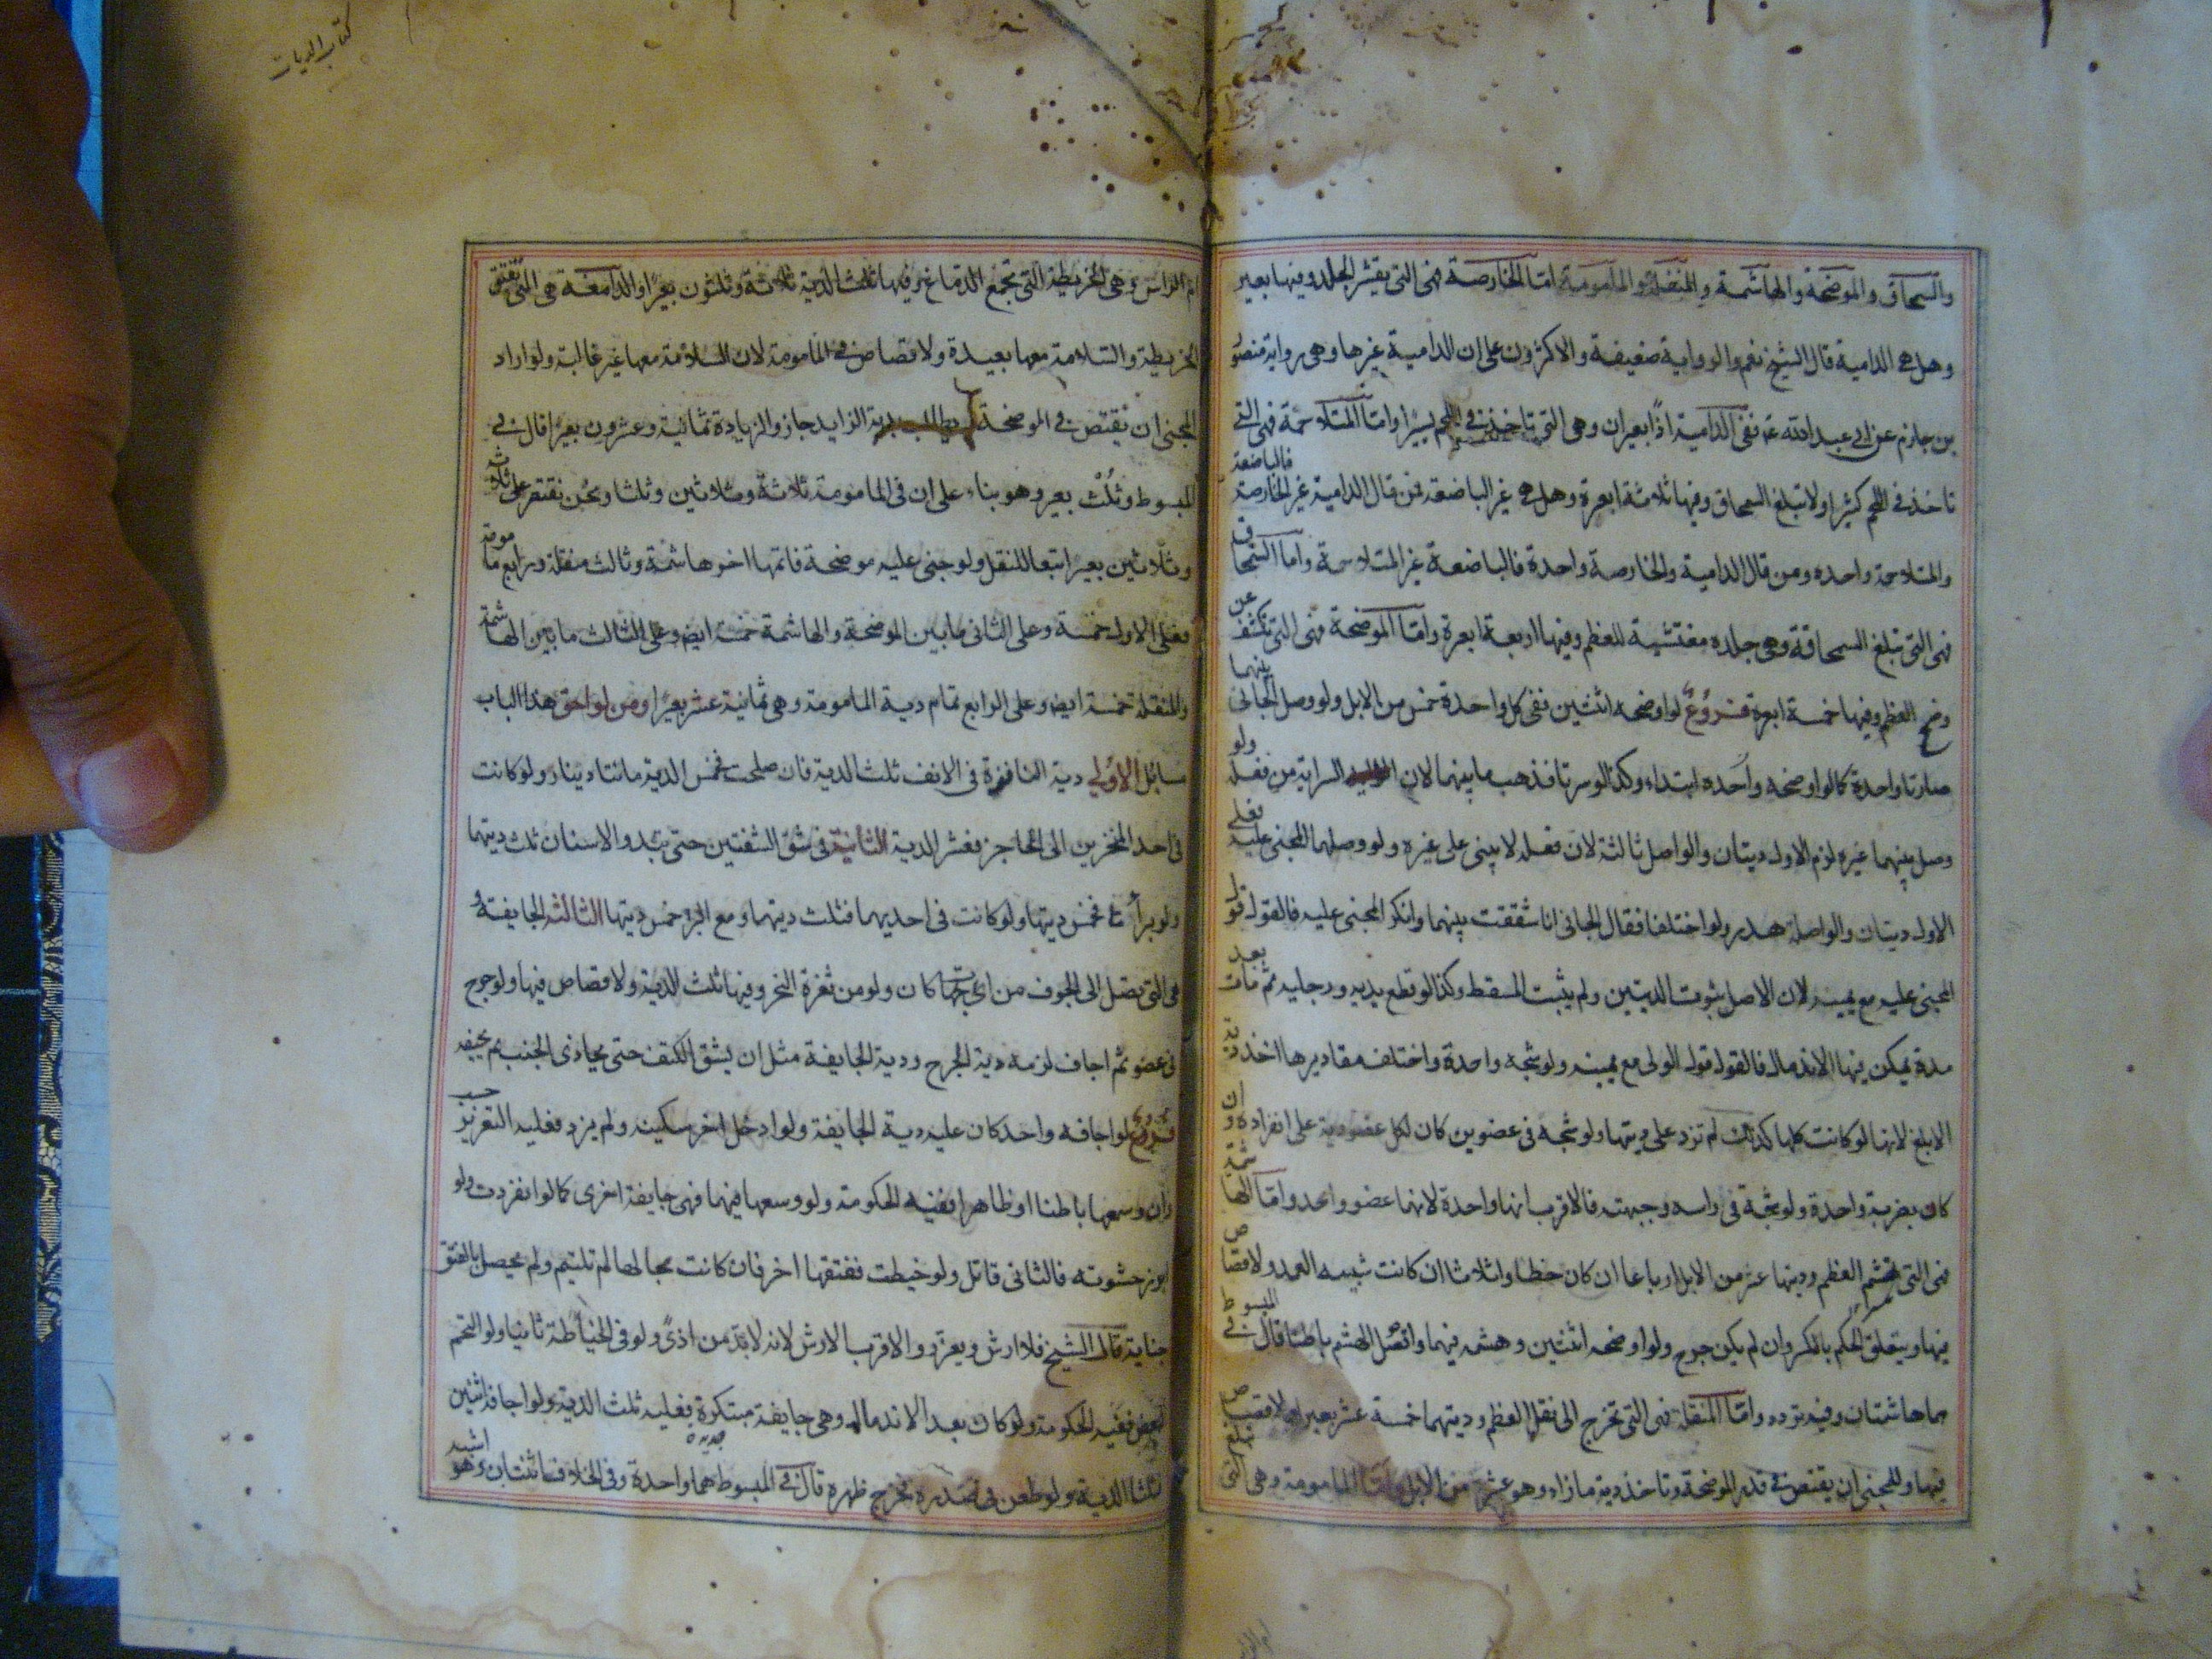 والسمحاق والموضحة والهاشمة والمنقلة والمأمومة اما الخارصة فهى التى يقشر الجلد وفيها بعير
وهل هى الدامية قال الشيخ نعم والرواية ضعيفة والاكثرون على ان الدامية غيرها وهى رواية منصور
بن حازم عن ابى عبد الله ع ففى الدامية اذًا بعيران وهى التى تاخذ فى اللحم يسيرا واما المتلاحمة فهى التى
تاخذ فى اللحم كثيرا ولا تبلغ السمحاق وفيها ثلاثة ابعرة وهل هى غير الباضعة فمن قال الدامية غير الخارصة فالباضعة
والمتلاحمة واحده ومن قال الدامية والخارصة واحدة فالباضعة غير المتلاحمة واما السمحاق
فهى التى تبلغ السمحاقة وهى جلده مغشية للعظم وفيها اربعة ابعرة واما الموضحة فهى التى تكشف عن
وضح العظم وفيها خمسة ابعرة فروع لو اوضحه اثنتين ففى كل واحدة خمس من الابل ولو وصل الجانى بينهما
صارتا واحدة كما لو اوضحه واحده ابتداء وكذا لو سرتا فذهب ما بينهما لان السراية من فعله ولو
وصل بينهما غيره لزم الاول ديتان والواصل ثالثة لان فعله لا يبنى على غيره ولو وصلهما المجنى عليه فعلى
الاول ديتان والواصلة هدر ولو اختلفا فقال الجانى انا شققت بينهما وانكر المجنى عليه فالقول قول
المجنى عليه مع يمينه لان الاصل ثبوت الديتين ولم يثبت المسقط وكذا لو قطع يديه ورجليه ثم مات بعد
مدة يمكن فيها الاندمال فالقول قول الولى مع يمينه ولو شجه واحدة واختلف مقاديرها اخذ دية
الابلغ لانها لو كانت كلها كذلك لم تزد على ديتها ولو شجه فى عضوين كان لكل عضو دية على انفراده وان
كان بضربة واحدة ولو شجه فى راسه وجبهته فالاقرب انها واحدة لانها عضو واحد واما الهاشمة
فهى التى تهشم العظم وديتها عشر من الابل ارباعا ان كان خطا واثلاثا ان كانت شبيه العمد ولا قصاص
فيها ويتعلق الحكم بالكسر وان لم يكن جرح ولو اوضحه اثنتين وهشمه فيهما واتصل الهشم باطنا قال فى المبسوط
هما هاشمتان وفيه تردد واما المنقلة فهى التى تخرج الى نقل العظم وديتهما خمسة عشر بعيرا ولا قصاص
فيها وللمجنى ان يقتص فى قدر الموضحة وتاخذ دية ما زاد وهو عشر من الابل واما المامومة وهى التى تبلغ
كتاب الديات
ام الراس وهى الخريطة التى تجمع الدماغ وفيها ثلث الدية ثلاثة وثلثون بعيرا والدامغة هى التى تفتق
الخريطة والسلامة معها بعيدة ولا قصاص فى المامومة لان السلامة معها غير غالبة ولو اراد
المجنى ان يقتص فى الموضحة ويطالب بدية الزايد جاز والزيادة ثمانية وعشرون بعيرا قال فى
المبسوط وثلث بعير وهو بناء على ان فى المامومة ثلاثة وثلاثين وثلثا ونحن نقتصر على ثلاث
وثلاثين بعيرا تبعا للنقل ولو جنى عليه موضحة فاتمها اخر هاشمة وثالث منقلة ورابع مامومة
فعلى الاول خمسة وعلى الثانى ما بين الموضحة والهاشمة خمسة ايض وعلى الثالث ما بين الهاشمة
والمنقلة خمسة ايض وعلى الرابع تمام دية المامومة وهى ثمانية عشر بعيرا ومن لواحق هذا الباب
مسائل الاولى دية النافذة فى الانف ثلث الدية فان صلحت فخمس الدية مائتا دينار ولو كانت
فى احد المنخرين الى الحاجز فعشر الدية الثانية فى شق الشفتين حتى تبدو الاسنان ثلث ديتهما
ولو برأتا فخمس ديتها ولو كانت فى احديهما فثلث ديتهما ومع البرء خمس ديتها الثالثة الجايفة
هى التى تصل الى الجوف من اى جهاته كان ولو من ثغرة النحر وفيها ثلث الدية ولا قصاص فيها ولو جرح
فى عضو ثم اجاف لزمه دية الجرح ودية الجايفة مثل ان يشق الكتف حتى يحاذى الجنب ثم يجيفه
فروع لو اجافه واحد كان عليه دية الجايفة ولو ادخل اخر سكينه ولم يزد فعليه التعزير حسب
وان وسعها باطنا او ظاهرا ففيه الحكومة ولو وسعها فيهما فهى جايفة اخرى كما لو انفردت ولو
ابرز حشوته فالثانى قاتل ولو خيطت ففتقها اخر فان كانت بحالها لم تلتئم ولم يحصل بالفتق
جناية قال الشيخ فلا ارش ويعزر والاقرب الارش لانه لا بد من اذى ولو فى الخياطة ثانيا ولو التحم
البعض ففيه الحكومة ولو كان بعد الاندمال وهى جايفة مبتكرة فعليه ثلث الدية ولو اجافه اثنتين
جديدة
فثلثا الدية ولو طعن فى صدره فخرج ظهره قال فى المبسوط هما واحدة وفى الخلاف اثنتان وهو اشبه